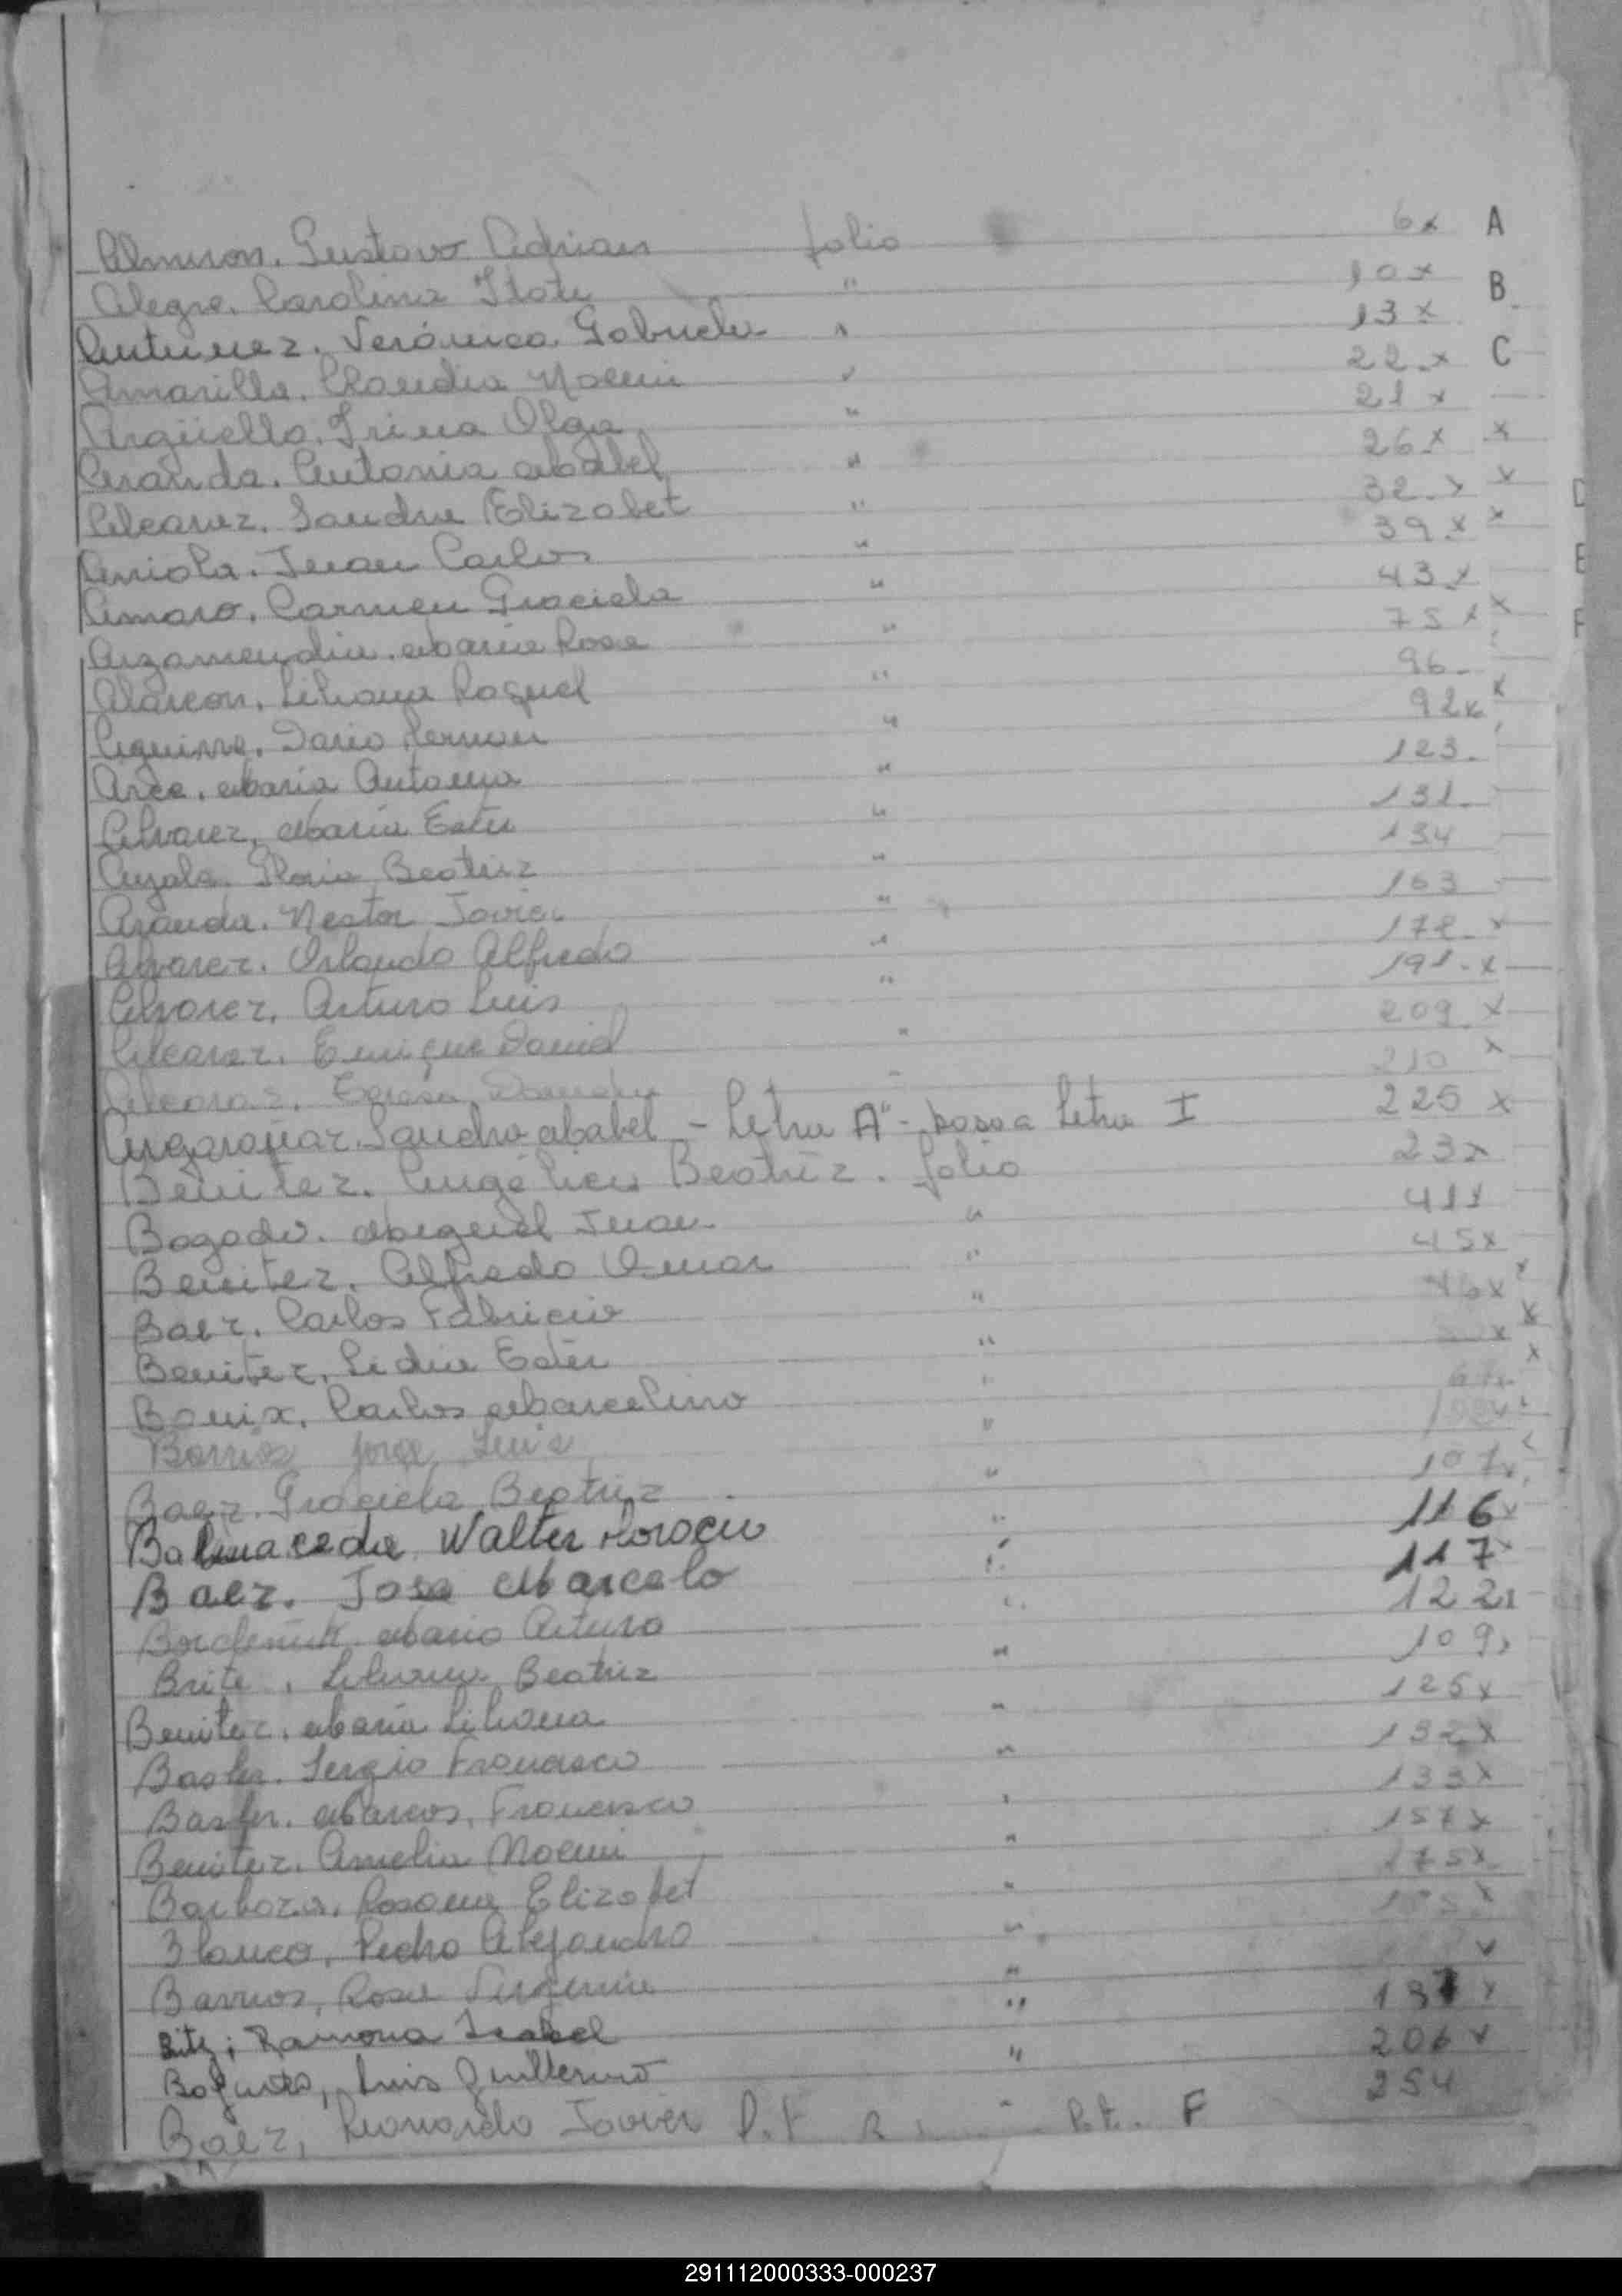 Almiron, Gustavo Adrian folio 6x A
Alegre, Carolina Itati " 10x B
Antunez, Verónica Gabriela " 13x
Amarilla, Claudia Noemi " 22x C
Argüello, Irina Olga " 21x
Aranda, Antonia Mabel " 26x x
Alcaraz, Sandra Elizabet " 32x x
Arriola, Juan Carlos " 39x x
Amaro, Carmen Graciela " 43x
Arzamendia, Maria Rosa " 75x x
Alarcon, Liliana Raquel " 96
Aguirre, Dario Hernan " 92x x
Arce, Maria Antonia " 123
Alvarez, Maria Ester " 131
Ayala, Gloria Beatriz " 134
Aranda, Nestor Javier " 163
Alvarez, Orlando Alfredo " 172 x
Alvarez, Arturo Luis " 191 x
Alcaraz, Enrique Daniel " 209 x
Alcaraz, Teresa " 210 x
Sandra Mabel - Letra A" - pasa a Letra I 225 x
Benitez, Angélica Beatriz. folio 23x
Bogado, Miguel Juan " 41x
Benitez, Alfredo Omar " 45x
Baez, Carlos Fabricio " 46x x
Benitez, Lidia Ester " x x
Bouix, Carlos Marcelino " x
Barrios Jorge Luis "
Baez, Graciela Beatriz " 107x
Balmaceda, Walter Horacio " 116x
Baez, Jose Marcelo " 117x
Mario Arturo " 122x
Brite, Liliana Beatriz " 109x
Benitez, Maria Liliana " 125x
Basler, Sergio Francisco " 132x
Basler, Marcos, Francisco " 133x
Benitez, Amelia Noemi " 157x
Barboza, Rosana Elizabet " 175x
Blanco, Pedro Alejandro " x
Barrios, Rosa Virginia "
Ramona Isabel " 197x
Luis Guillermo " 206x
Baez, Leonardo Javier Let. B Let. F 254
D
E
F
291112000333-000237